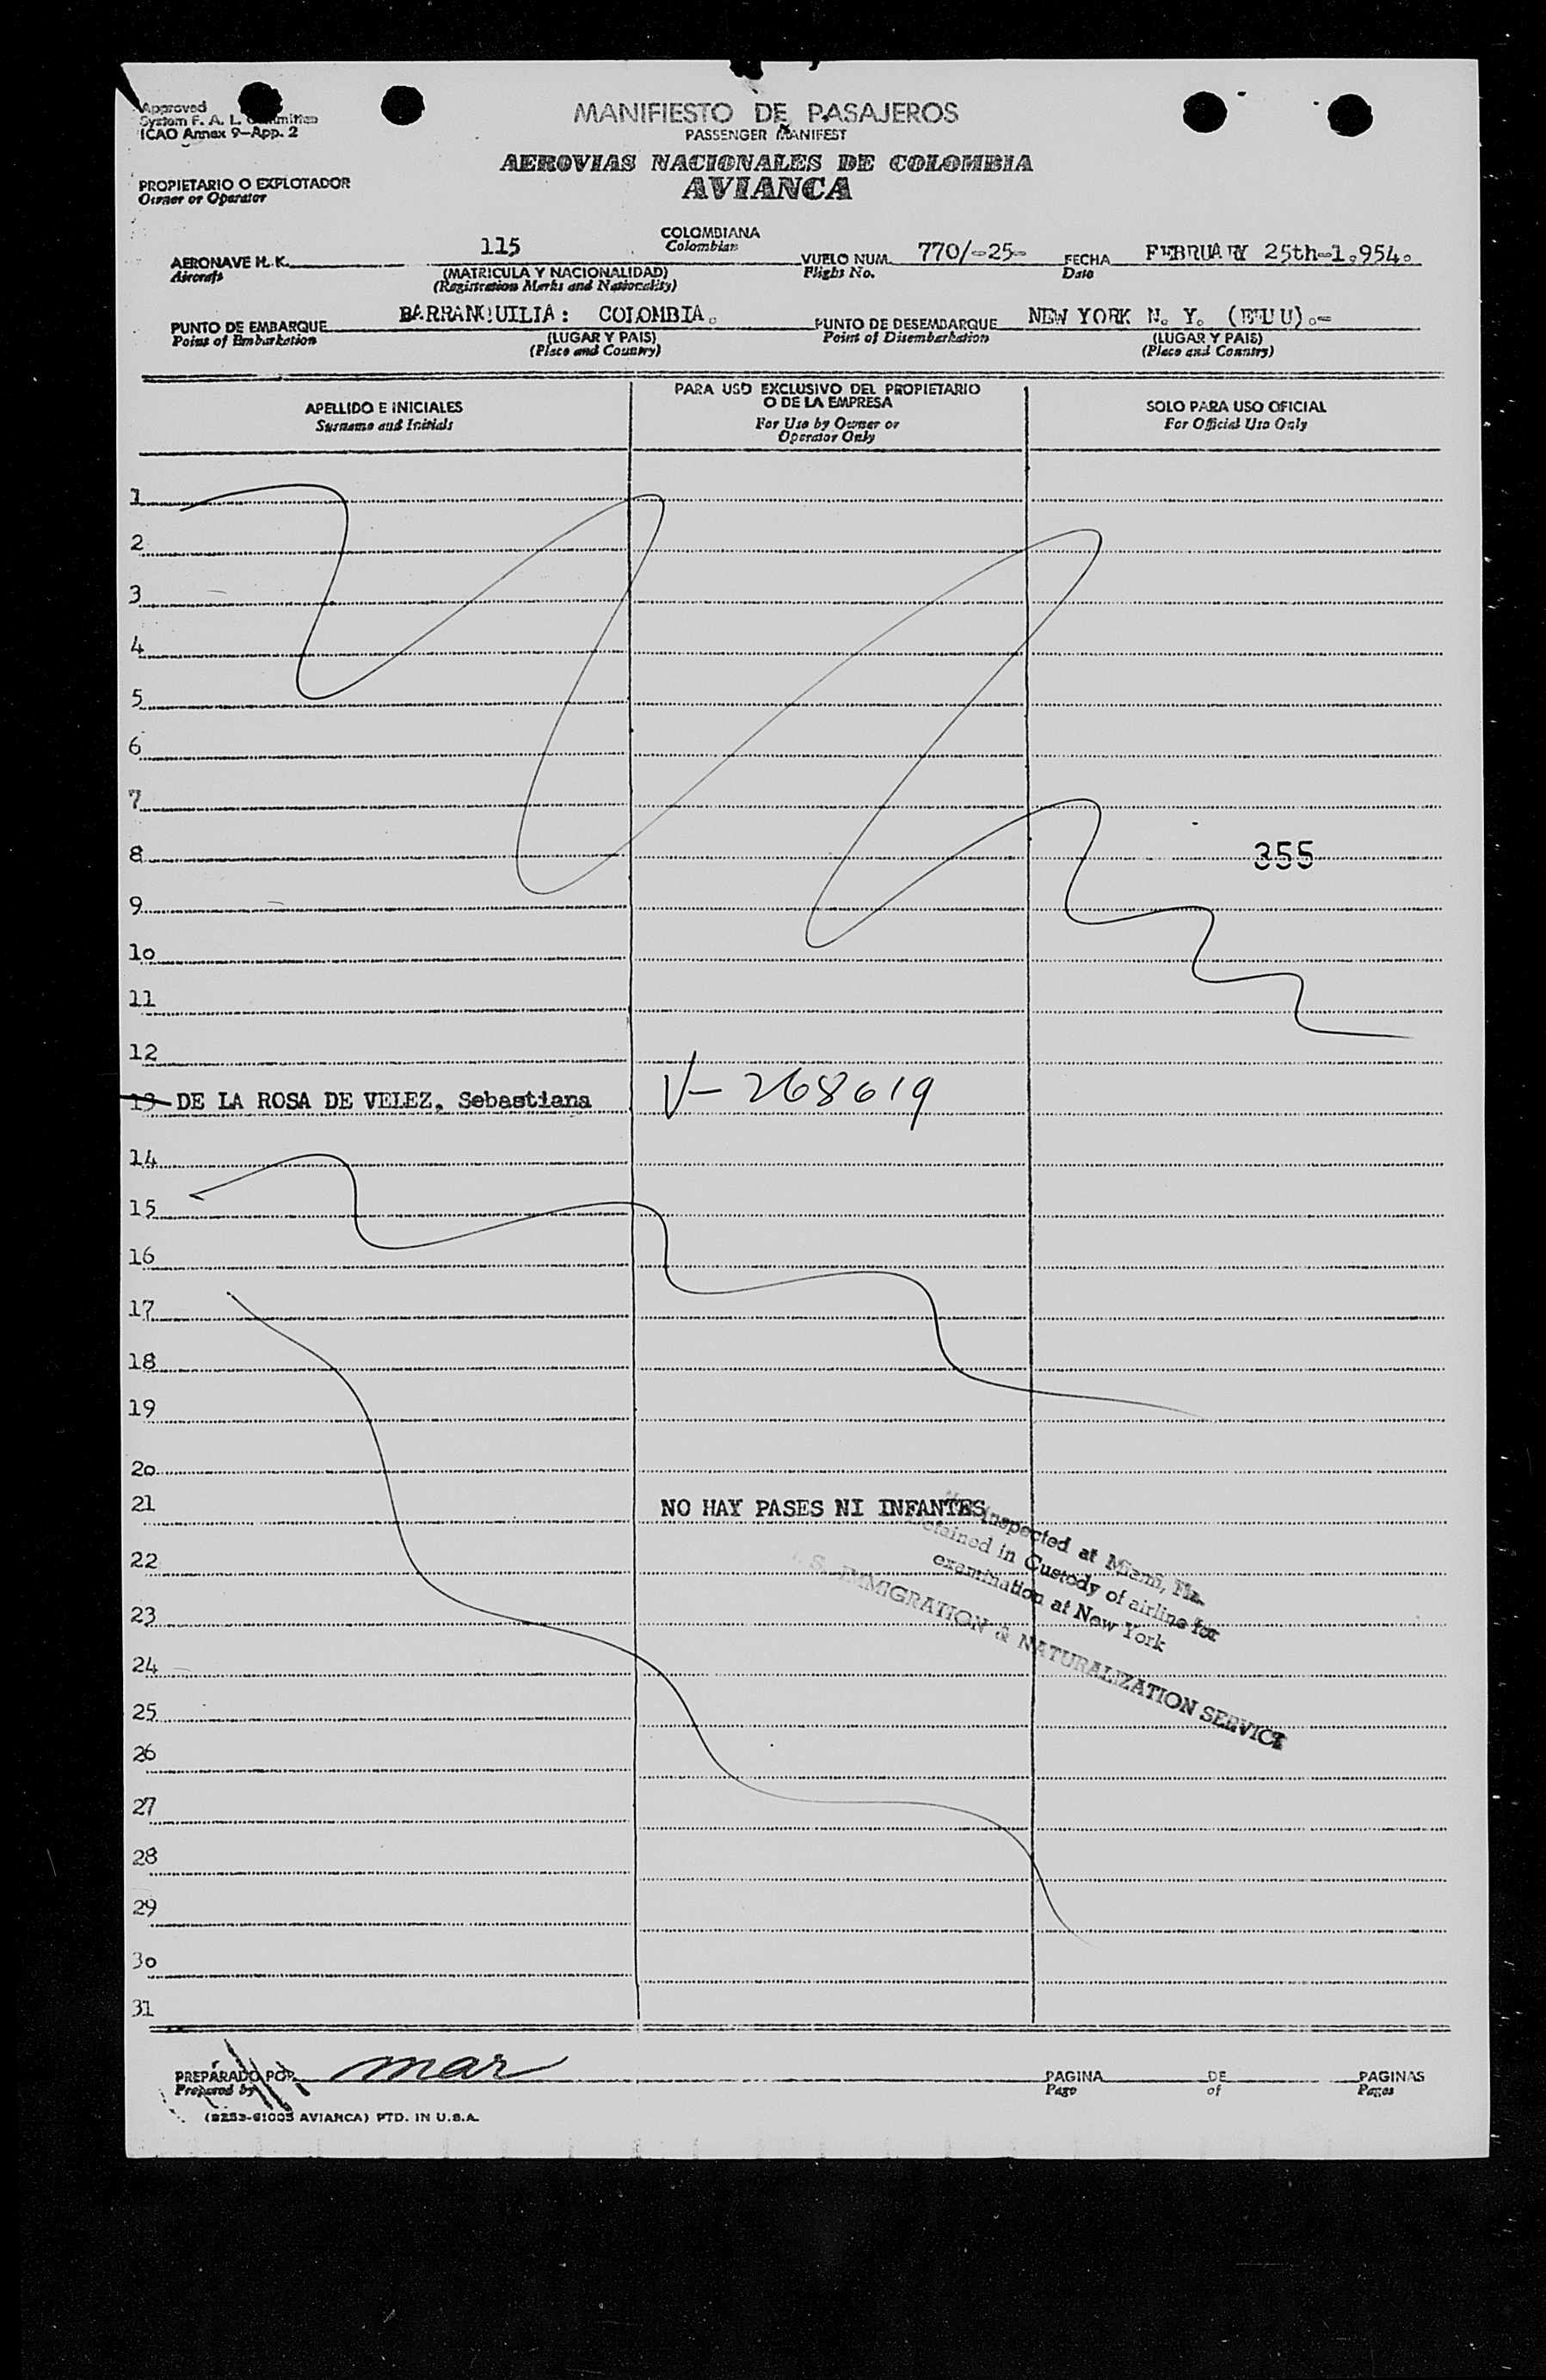 Approved
System F. A. L. Committee
ICAO Annex 9-App. 2
MANIFIESTO DE PASAJEROS
PASSENGER MANIFEST
AEROVIAS NACIONALES DE COLOMBIA
AVIANCA
PROPIETARIO O EXPLOTADOR
Owner or Operator
AERONAVE H. K. 115 COLOMBIANA VUELO NUM. 770/-25- FECHA FEBRUARY 25th-1.954.
Aircraft Colombian Flight No. Date
(MATRICULA Y NACIONALIDAD)
(Registration Marks and Nationality)
PUNTO DE EMBARQUE BARRANQUILIA: COLOMBIA. PUNTO DE DESEMBARQUE NEW YORK N. Y. (EEUU).-
Point of Embarkation (LUGAR Y PAIS) Point of Disembarkation (LUGAR Y PAIS)
(Place and Country) (Place and Country)
APELLIDO E INICIALES PARA USO EXCLUSIVO DEL PROPIETARIO O DE LA EMPRESA SOLO PARA USO OFICIAL
Surname and Initials For Use by Owner or Operator Only For Official Use Only
1
2
3
4
5
6
7
8 355
9
10
11
12
13 DE LA ROSA DE VELEZ, Sebastiana V- 268619
14
15
16
17
18
19
20
21 NO HAY PASES NI INFANTES
Inspected at Miami, Fla.
in Custody of airline for
examination at New York
U. S. IMMIGRATION & NATURALIZATION SERVICE
22
23
24
25
26
27
28
29
30
31
PREPARADO POR mar PAGINA DE PAGINAS
Prepared by Page of Pages
(8253-61005 AVIANCA) PTD. IN U.S.A.